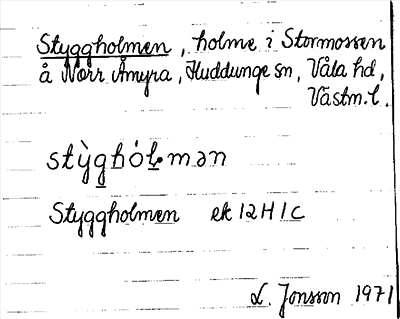 Styggholmen, holme i Stormossen
å Norr Åmyra, Huddunge sn, Våla hd,
Västm. l.
stỳg̲hól̲·mən
Styggholmen ek 12H1C
L. Jonsson 1971